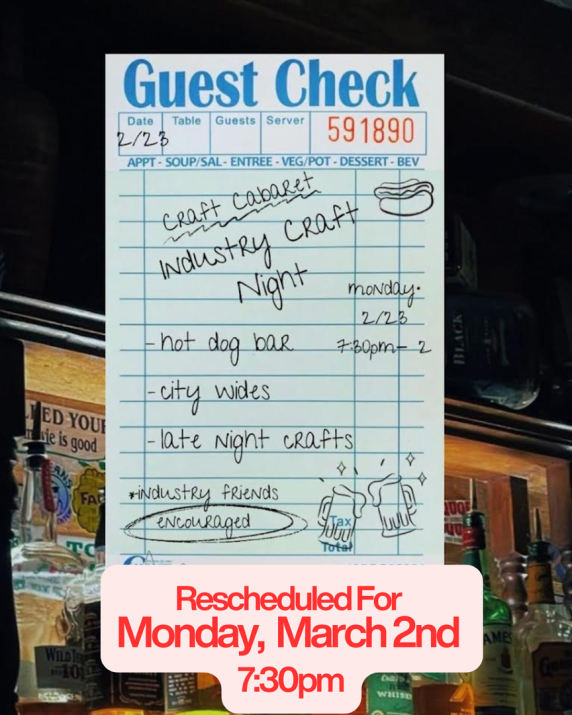 Guest Check
Date Table Guests Server
2/23
591890
APPT - SOUP/SAL - ENTREE - VEG/POT - DESSERT - BEV
Craft Cabaret
Industry Craft
Night
monday.
2/23
-hot dog bar
7:30pm- 2
-city wides
-late night crafts
*industry friends
encouraged
Tax
Total
Rescheduled For
Monday, March 2nd
7:30pm
BLACK
is good
WILD
10